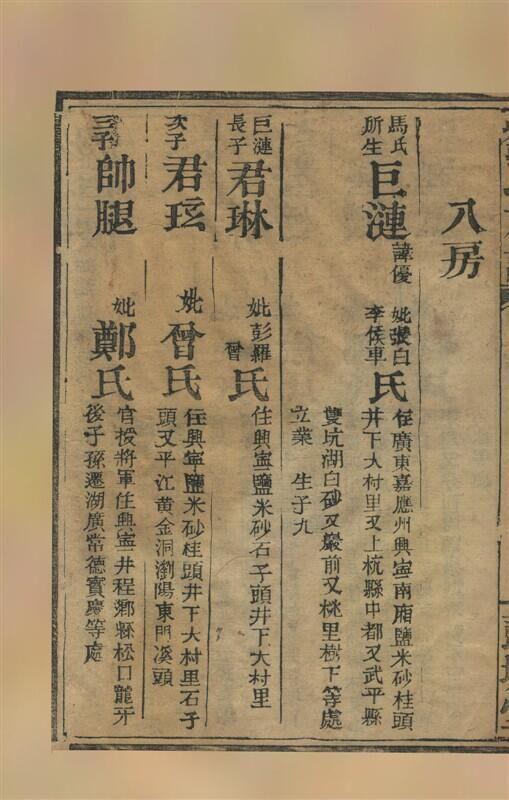 八房
馬氏
所生
巨漣
諱優
妣張白
李侯車
氏
住廣東嘉應州興寧南廂鹽米砂桂頭
井下大村里又上杭縣中都又武平縣
雙坑湖白砂又巖前又桃里樹下等處
立業 生子九
巨漣
長子
君琳
妣彭羅
曾
氏
住興寧鹽米砂石子頭井下大村里
次子
君珎
妣
曾氏
住興寧鹽米砂桂頭井下大村里石子
頭又平江黃金洞瀏陽東門溪頭
三子
帥腿
妣
鄭氏
官授將軍住興寧一井程鄉縣松口龍牙
後子孫遷湖廣常德寶慶等處